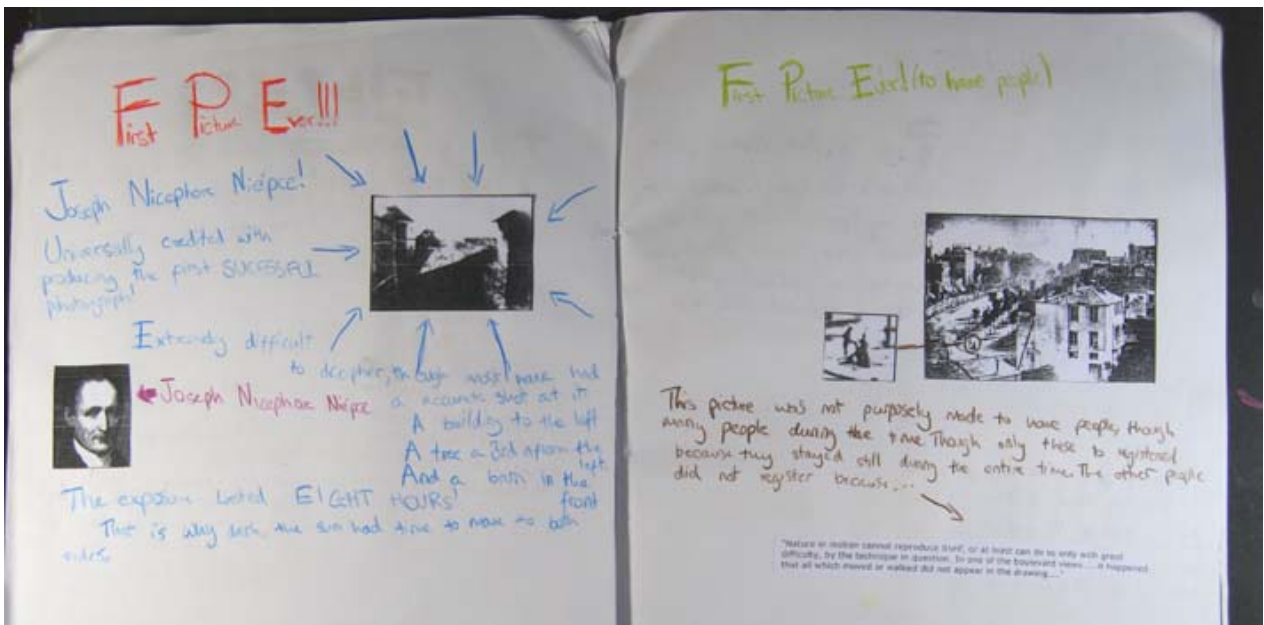 First Picture Ever!!!
Joseph Nicephore Niépce!
Universally credited with
producing the first SUCESSFUL
photograph!
Extremely difficult
to decipher, though most have had
a accurate shot at it
A building to the left
A tree a 3rd from the
left.
And a barn in the
front
Joseph Nicephore Niépce
The exposure lasted EIGHT HOURS!
That is why the sun had time to move to both
sides.
First Picture Ever! (to have people)
This picture was not purposely made to have people, though
many people during the time. Though only these to registered
because they stayed still during the entire time. The other people
did not register because....
"Nature in motion cannot reproduce itself, or at least can do so only with great
difficulty, by the technique in question. In one of the boulevard views.... it happened
that all which moved or walked did not appear in the drawing...."